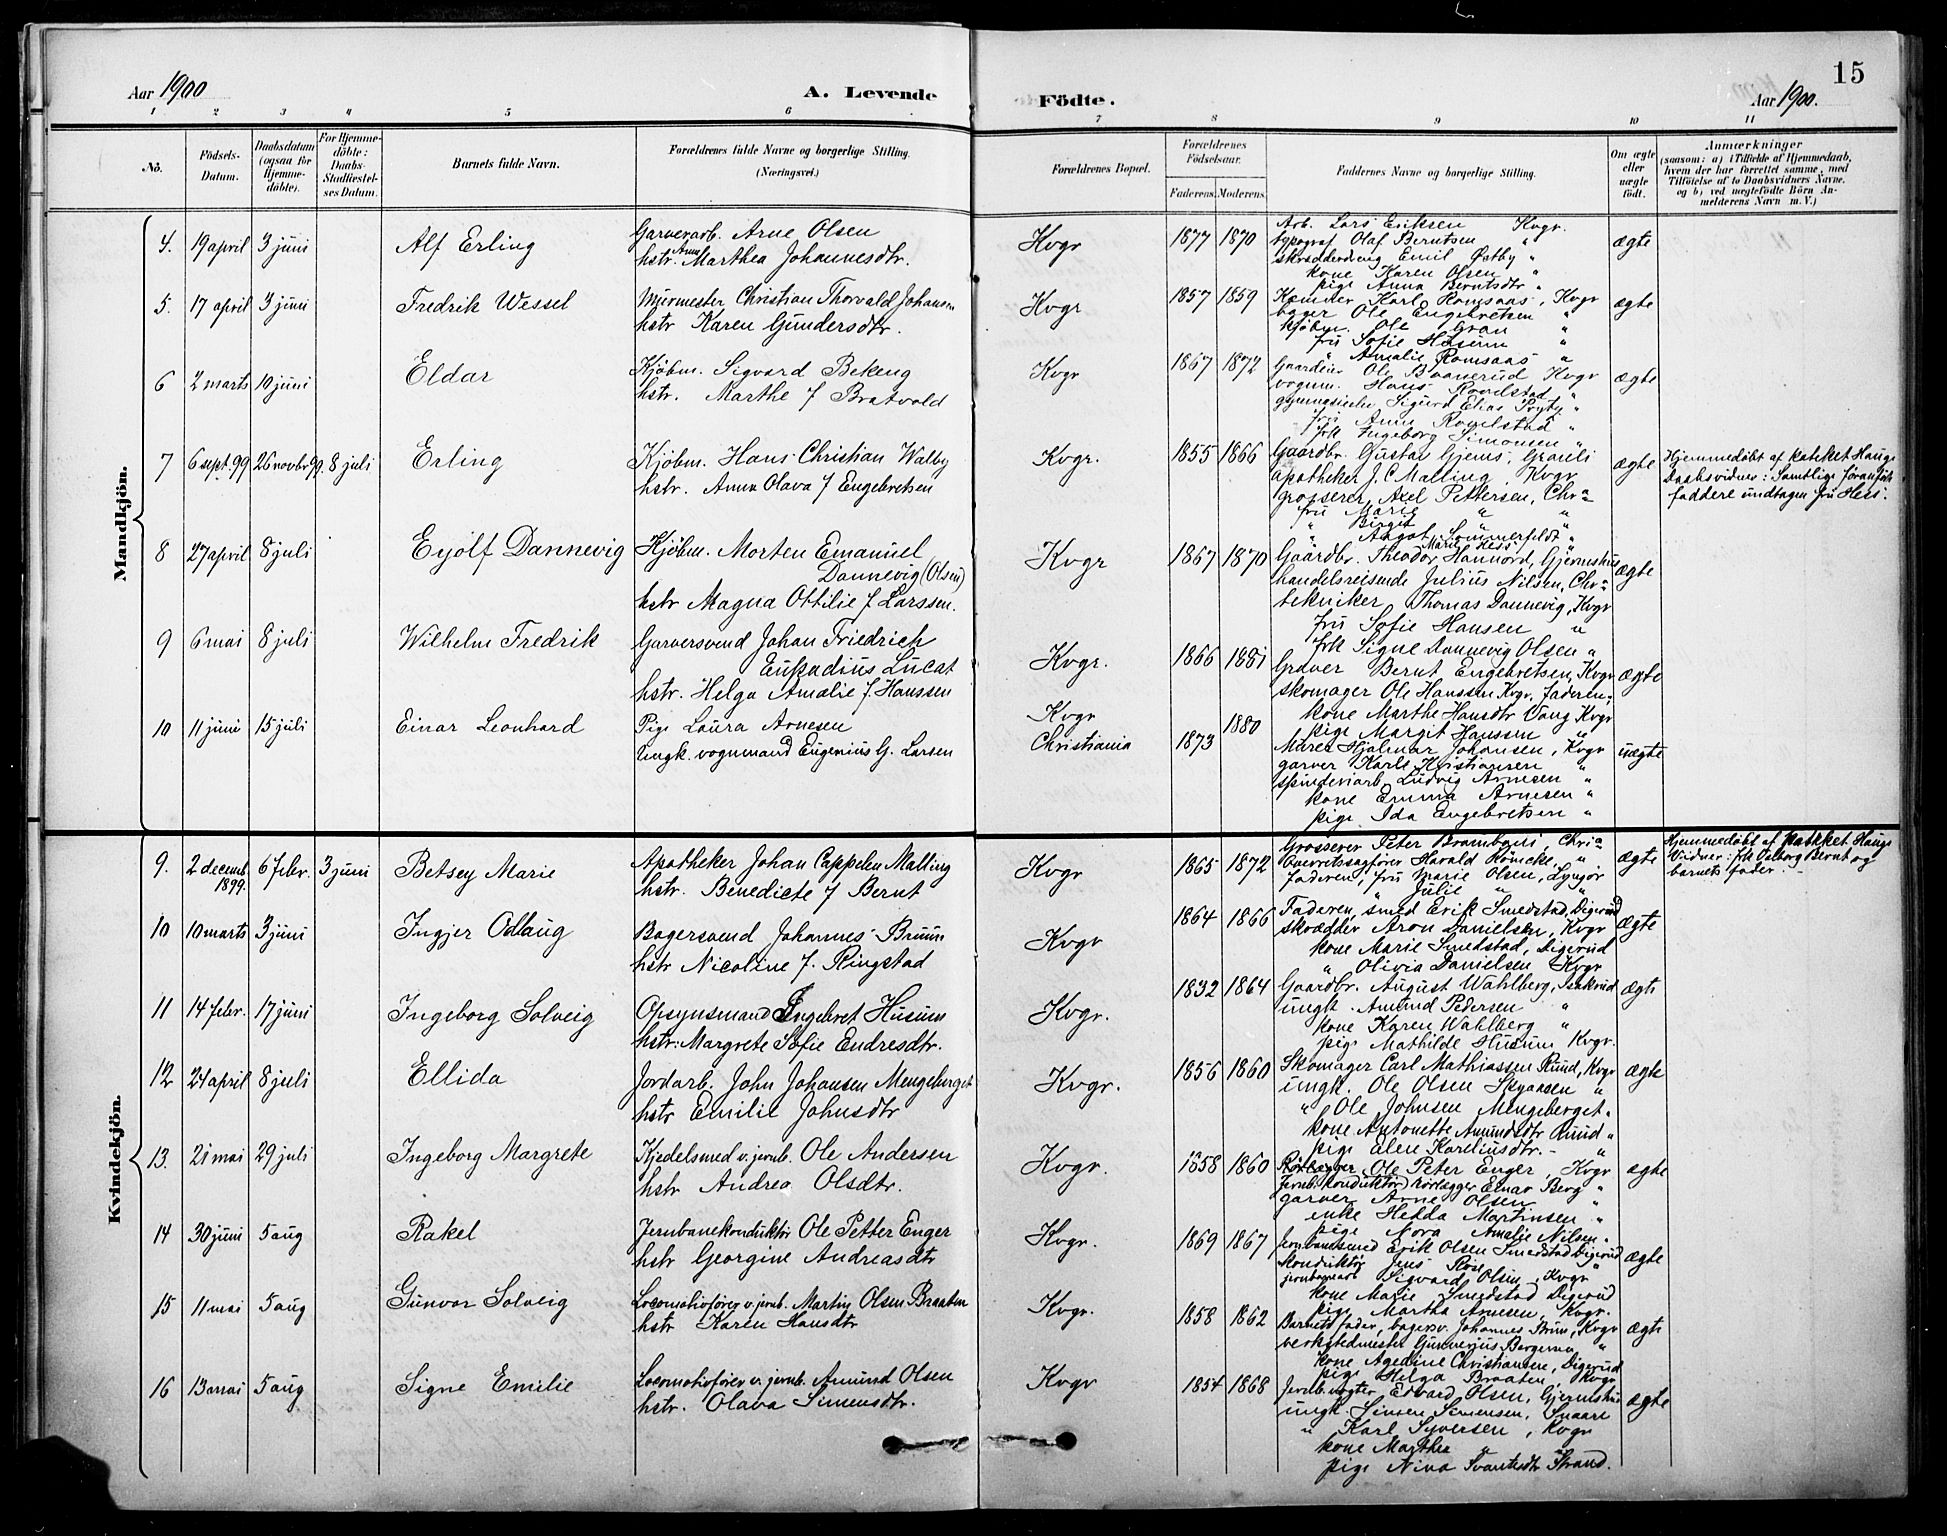 15
Aar 1900
A. Levende
Födte.
Aar 1900.
1 2 3 4 5 6 7 8 9 10 11
No.
Födsels-Datum.
Daabsdatum (ogsaa for Hjemme-döbte).
For Hjemme-döbte: Daabs-Stadfæstel-ses Datum.
Barnets fulde Navn.
Forældrenes fulde Navne og borgerlige Stilling. (Næringsvei.)
Forældrenes Bopæl.
Forældrenes Födselsaar.
Faderens. Moderens.
Faddernes Navne og borgerlige Stilling.
Om ægte eller uægte födt.
Anmærkninger
(saasom: a) i Tilfælde af Hjemmedaab,
hvem der har forrettet samme, med
Tilföielse af to Daabsvidners Navne,
og b) ved uægtefödte Börn An-
melderens Navn m. V.)
Mandkjön.
4. 19 april 3 juni Alf Erling
Garverarb. Arne Olsen
hstr. Anne Marthea Johannesdtr.
Kvgr 1877 1870
Arb. Lars Eriksen Kvgr.
typograf Olaf Berntsen "
skrædderdreng Emil Østby "
kone Karen Olsen "
pige Anna Berntsdtr "
ægte
5. 17 april 3 juni Fredrik Wessel
Murmester Christian Thorvald Johansen
hstr Karen Gundersdtr.
Kvgr 1857 1859
Kæmner Karl Romsaas, Kvgr
bager Ole Engebretsen "
kjöbm. Ole Gran "
fru Sofie "
" Amalie Romsaas "
ægte
6 2 marts 10 juni Eldar
Kjøbm. Sigvard Bekeng
hstr. Marthe f Bratvold
Kvgr 1867 1872
Gaardeier Ole Kvgr
vognm. Hans "
Sigurd Elias "
fru Anna "
frk Ingeborg Simonsen "
ægte
7 6 sept. 99 26 novbr 99. 8 juli Erling
Kjöbm. Hans Christian Walby
hstr. Anna Olava f Engebretsen
Kvgr. 1855 1866
Gaardbr. Gustav Gjems, Granli
apotheker J. C Malling, Kvgr
grosserer Axel Pettersen, Chr.a
fru Marie " "
" Birgit "
" Aagot Sommerfeldt "
Marie Hess "
ægte
Hjemmedöbt af kateket Hauge
Daabsvidner: Samtlige foranførte
faddere undtagen fru Hess.
8 27 april 8 juli Eyolf Dannevig
Kjøbm. Morten Emanuel
Dannevig (Olsen)
hstr Magna Ottilie f Larssen.
Kvgr 1867 1870
Gaardbr. Theodor Hannord, Gjermshus
handelsreisende Julius Nilsen, Chr.a
tekniker Thomas Dannevig, Kvgr
fru Sofie Hansen "
frk Signe Dannevig Olsen "
ægte
9 6 mai 8 juli Wilhelm Fredrik
Garversvend Johan Friedrich
Eukadius Lucat
hstr. Helga Amalie f. Hanssen
Kvgr. 1866 1881
Graver Bernt Engebretsen, Kvgr
skomager Ole Hanssen Kvgr, faderen,
kone Marthe Hansdtr Vang Kvgr
pige Margit Hanssen "
ægte
10 11 juni 15 juli Einar Leonhard
Pige Laura Arnesen
Ungk. vognmand Eugenius G. Larsen
Kvgr 1880
Christiania 1873
Maler Hjalmar Johansen, Kvgr
garver Karl Kristiansen "
spinderiarb. Ludvig Arnesen "
kone Emma Arnesen "
pige Ida Engebretsen "
uægte
Kvindekjön.
9. 2 decemb. 1899. 6 febr. 3 juni Betsey Marie
Apotheker Johan Cappelen Malling
hstr. Benedicte f Bernt
Kvgr 1865 1872
Grosserer Peter, Chr.a
Overretssagfører Harald "
Faderen, fru Marie Olsen, Lyngör
" Julie " "
ægte
Hjemmedöbt af kateket Hauge
Vidner: frk Valborg Bernt og
barnets fader.
10 10 marts 3 juni Ingjer Odlaug
Bagersvend Johannes Bruun
hstr Nicoline f. Ringstad
Kvgr 1864 1866
Faderen, smed Erik Smedstad, Digerud
skrædder Aron Danielsen, Kvgr
kone Marie Smedstad, Digerud
" Olivia Danielsen Kvgr
ægte
11 14 febr. 17 juni Ingeborg Solveig
Opsynsmand Ingebret Husum
hstr: Margrete Sofie Endresdtr.
Kvgr. 1832 1864
Gaardbr. August Wahlberg, Isakrud
ungk. Amund Pedersen "
kone Karen Wahlberg "
pige Mathilde Husum Kvgr.
ægte
12 24 april 8 juli Ellida
Jordarb. John Johansen Mengeberget
hstr Emilie Johnsdtr
Kvgr. 1856 1860
Skomager Carl Mathiassen Ruud, Kvgr
ungk. Ole Olsen "
" Ole Johnsen Mengeberget "
kone Antonette Amundsdtr Ruud "
pige Elen Kareliusdtr. "
ægte
13. 21 mai 29 juli Ingeborg Margrete
Kjedelsmed v. jernb. Ole Andersen
hstr Andrea Olsdtr.
Kvgr. 1858 1860
Ole Peter Enger, Kvgr
Jernb. konduktør rørlægger Einar Berg "
garver Arne Olsen "
enke Hedda Martinsen "
pige Nora Amalie Nilsen "
ægte
14 30 juni 5 aug Rakel
Jernbanekonduktør Ole Petter Enger
hstr Georgine Andreasdtr
Kvgr. 1869 1867
Jernbanesmed Erik Olsen Smedstad Digerud
konduktør Jens Rose "
jernbanearb Sigvard Olsen, Kvgr
kone Marie Smedstad Digerud
pige Martha Arnesen, Kvgr.
ægte
15 11 mai 5 aug Gunvor Solveig
Locomotivfører v. jernb. Martin Olsen Braaten
hstr Karen Hansdtr
Kvgr. 1858 1862
Barnets fader, bagersv. Johannes Bruun, Kvgr
verkstedmester Gunnerius Bergersen "
kone Agedine Christiansen, Digerud
pige Helga Braaten, Kvgr
ægte
16 13 mai 5 aug Signe Emilie
Locomotivfører v. jernb. Amund Olsen
hstr. Olava Simensdtr.
Kvgr 1854 1868
Jernb.vogter Edvard Olsen, Gjermshus
ungk. Simen Simensen, Snaare
" Karl Syversen, Kvgr
kone Marthea " "
pige Nina Svartesdtr Strand.
ægte